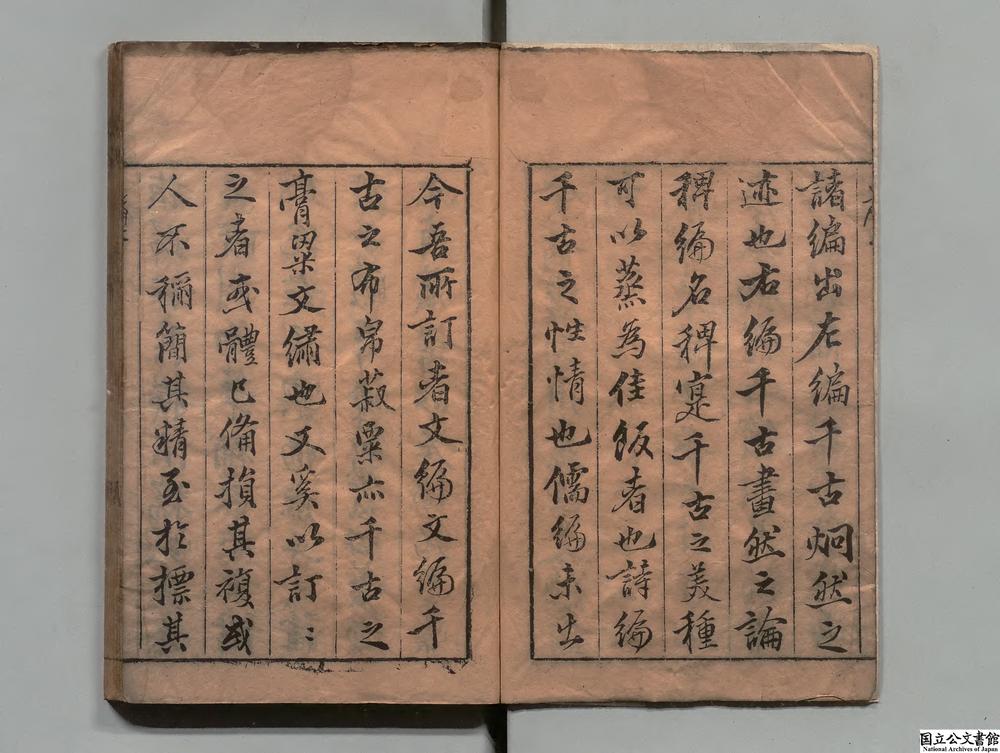 諸編出左編千古炯然之
迹也右編千古畫然之論
稗編名稗寔千古之美種
可以蒸為佳飯者也詩編
千古之性情也儒編未出
今吾所訂者文編文編千
古之布帛菽粟亦千古之
膏粱文繡也又奚以訂〻
之者或體已備損其複或
人不稱簡其精至於標其
国立公文書館
National Archives of Japan